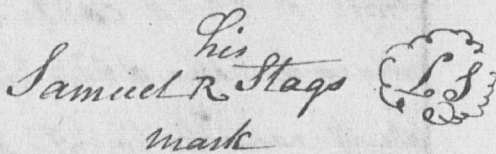 his
Samuel R Stags L S
mark